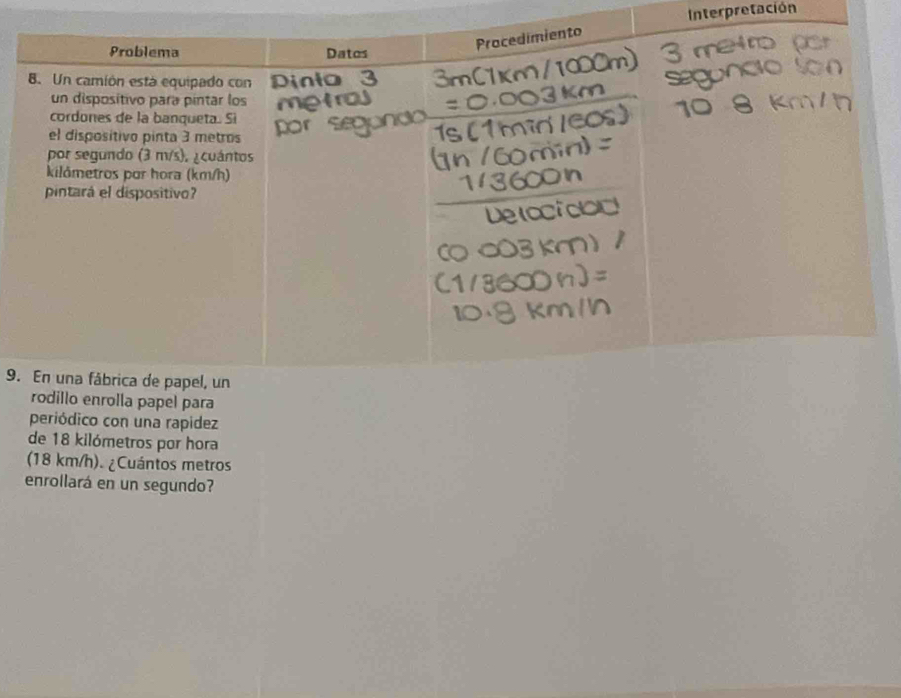 Problema Datos Procedimiento Interpretación
8. Un camión está equipado con
un dispositivo para pintar los
cordones de la banqueta. Si
el dispositivo pinta 3 metros
por segundo (3 m/s), ¿cuántos
kilómetros por hora (km/h)
pintará el dispositivo?
Pinta 3
metros
por segundo
3m(1km/1000m)
=0.003km
1s(1min/60s)
(1h/60min)=
1/3600h
Velocidad
(0.003km)/
(1/3600h)=
10.8 km/h
3 metro por
segundo son
10 8 km/h
9. En una fábrica de papel, un
rodillo enrolla papel para
periódico con una rapidez
de 18 kilómetros por hora
(18 km/h). ¿Cuántos metros
enrollará en un segundo?